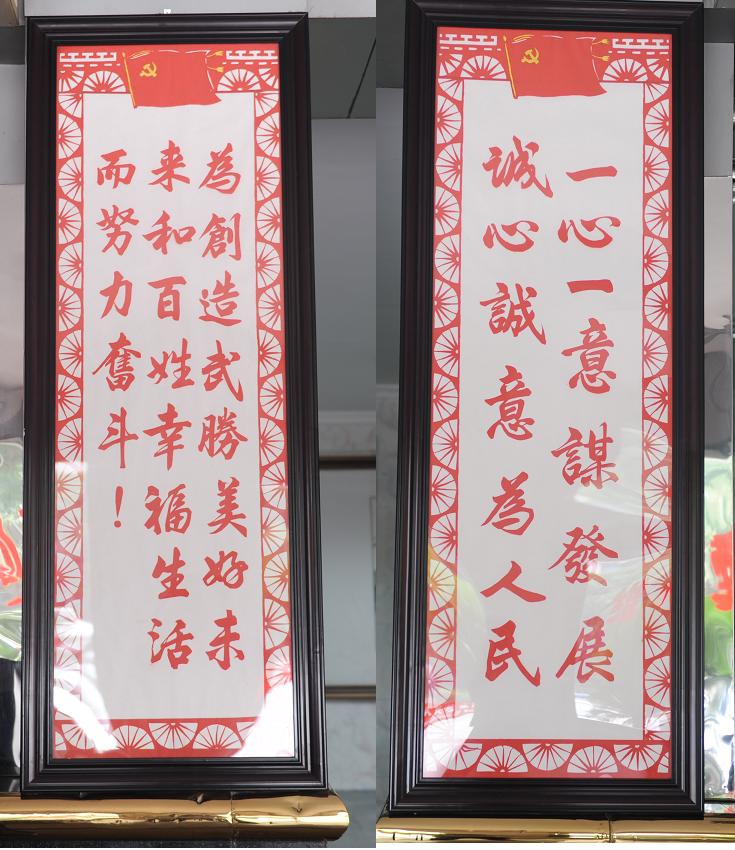 為創造武勝美好未
来和百姓幸福生活
而努力奮斗！
一心一意謀發展
誠心誠意為人民